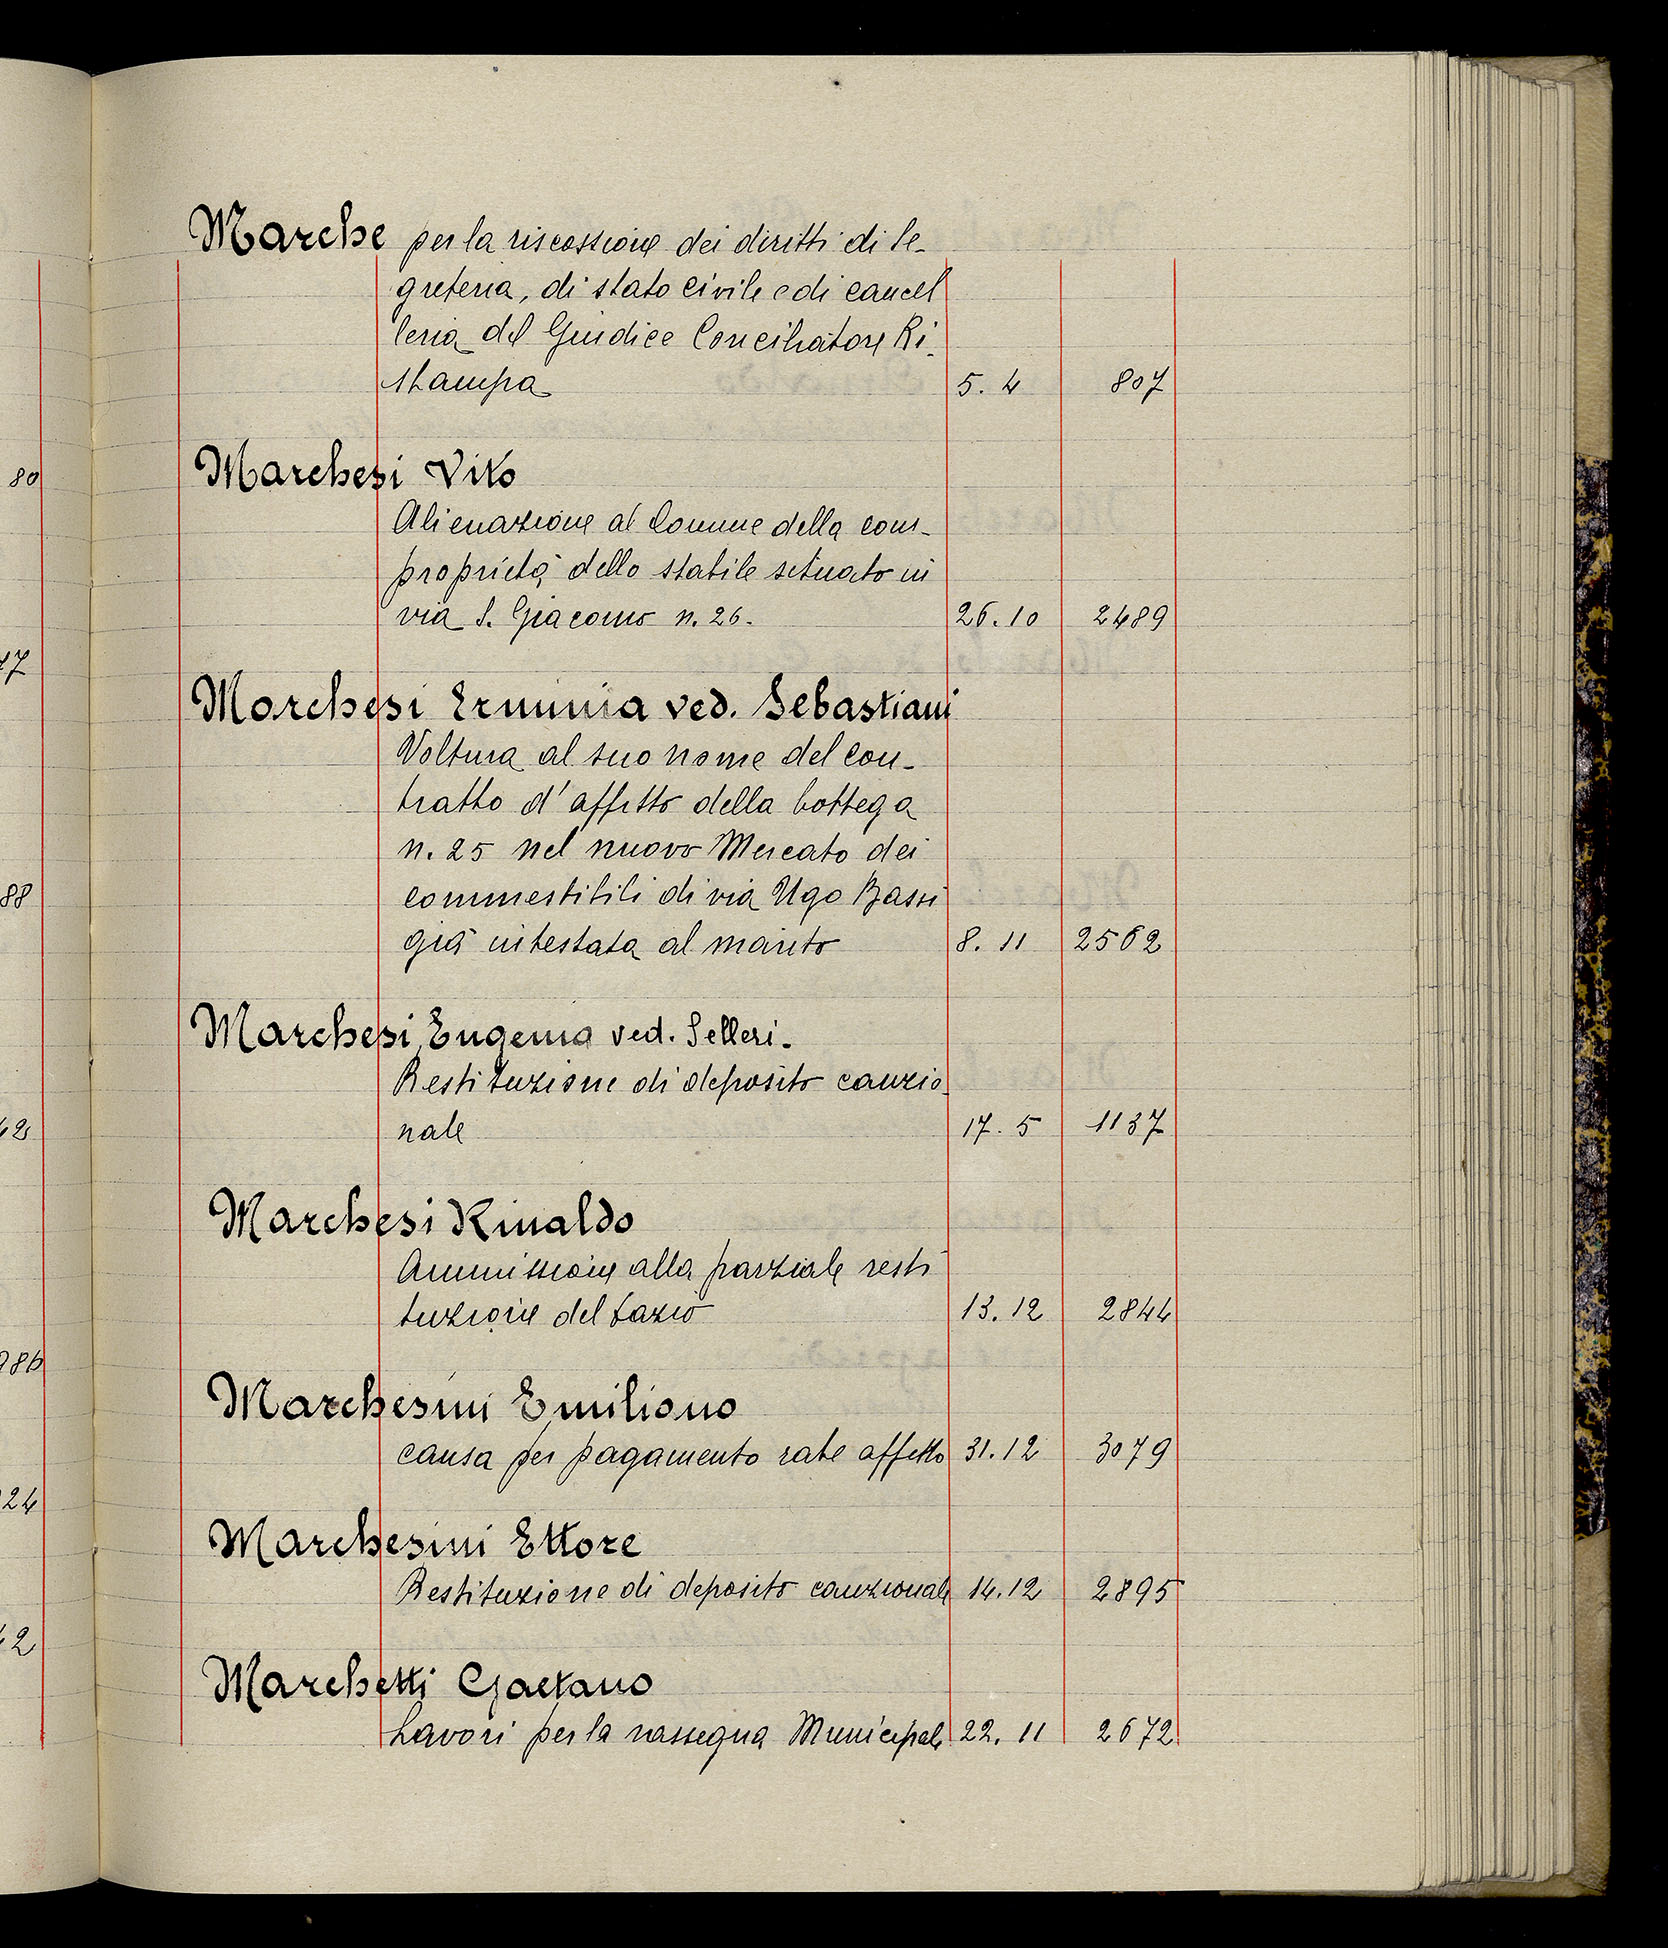 Marche per la riscossione dei diritti di Se-
greteria, di stato civile e di cancel
leria del Giudice Conciliatore Ri-
stampa 5. 4 807
80
Marchesi Vito
Alienazione al Comune della com-
proprietà dello stabile situato in
via S. Giacomo n. 26. 26. 10 2489
Marchesi Erminia ved. Sebastiani
Voltura al suo nome del con-
tratto d'affitto della bottega
n. 25 nel nuovo Mercato dei
commestibili di via Ugo Bassi
88
già intestata al marito 8. 11 2562
Marchesi Eugenia ved. Selleri.
Restituzione di deposito cauzio-
nale 17. 5 1137
Marchesi Rinaldo
Ammissione alla parziale resti
tuzione del dazio 13. 12 2844
986
Marchesini Emiliano
causa per pagamento rate affitto 31. 12 3079
24
Marchesini Ettore
Restituzione di deposito cauzionale 14. 12 2895
Marchetti Gaetano
Lavori per la rassegna Municipale 22. 11 2672